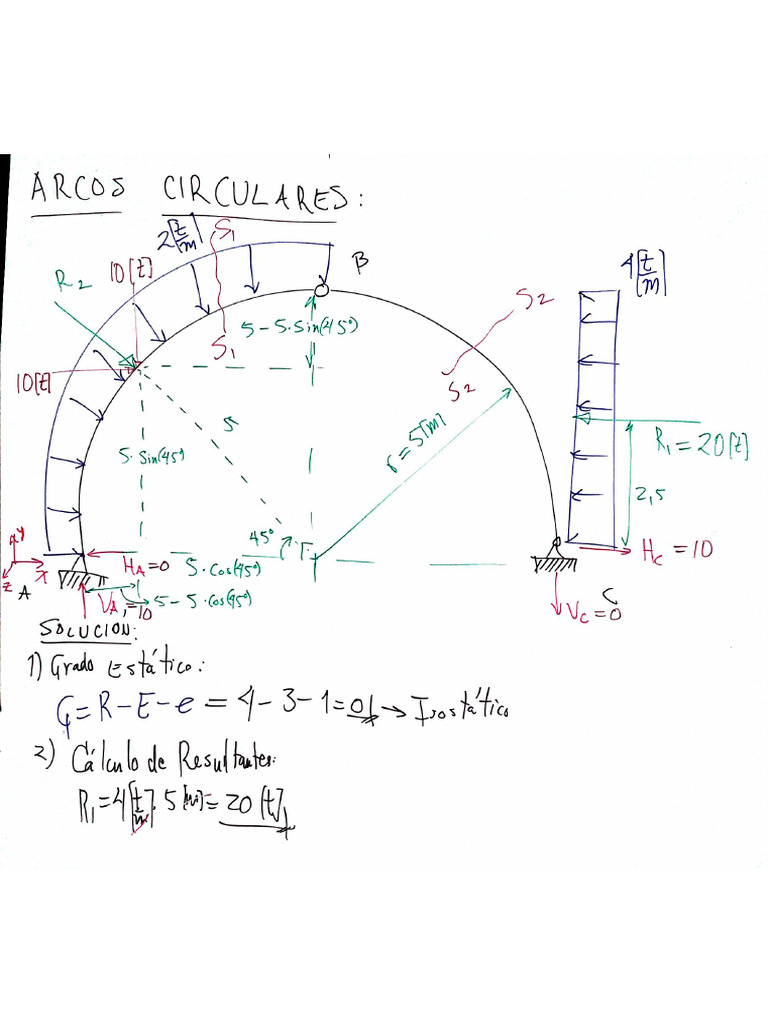 ARCOS CIRCULARES:
2[t/m]
S1
B
R2
10[t]
4[t/m]
S2
5-5·Sin(45°)
S1
S2
10[t]
5
r=5[m]
R1=20[t]
5·Sin(45°)
2,5
45°
y
x
z
A
HA=0
5·Cos(45°)
HC=10
VA=10
5-5·Cos(45°)
C
VC=0
SOLUCION:
1) Grado Estático:
G=R-E-e=4-3-1=0 → Isostático
2) Cálculo de Resultantes:
R1=4[t/m]·5[m]=20[t]